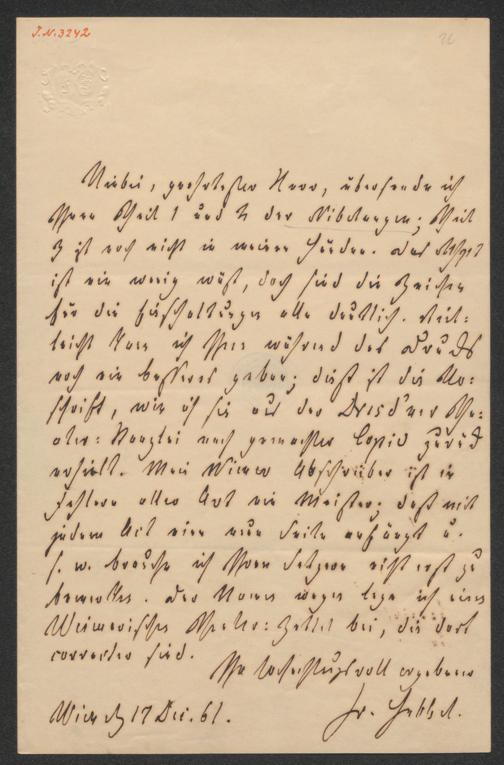 J.N. 3242
Hiebei, geehrtester Herr, übersende ich
Ihnen Theil 1 und 2 der Nibelungen; Theil
3 ist noch nicht in meinen Händen. Das Mspt
ist ein wenig wüst, doch sind die Zeichen
für die Einschaltungen alle deutlich. Viel-
leicht kann ich Ihnen während des Drucks
noch ein besseres geben; dieß ist die Ab-
schrift, wie ich sie aus der Dresd'ner The-
ater-Kanzlei nach gemachter Copie zurück
erhielt. Mein Wiener Abschreiber ist in
Fehlern aller Art ein Meister; daß mit
jedem Act eine neue Seite anfängt u.
s. w. brauche ich Ihrem Setzer nicht erst zu
bemerken. Der Namen wegen lege ich einen
Weimarischen Theater-Zettel bei, die dort
correcter sind.
Ihr hochachtungsvoll ergebener
Wien d. 17 Dec. 61.
Fr. Hebbel.